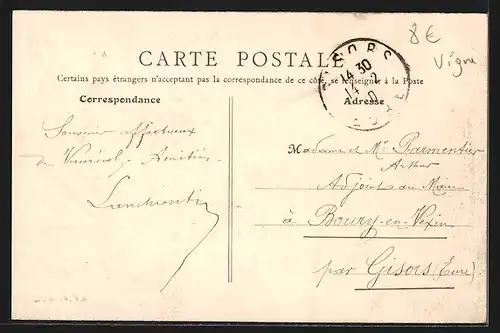 8€
Vigne
CARTE POSTALE
GISORS
14 30
14 - 2
0
EURE
Certains pays étrangers n'acceptant pas la correspondance de ce côté, se renseigner à la Poste
Correspondance
Adresse
Souvenir affectueux
de Vauréal. Amitiés
Madame et Mr Parmentier
Arthur
Adjoint au Maire
à Boury-en-Vexin
par Gisors (Eure)